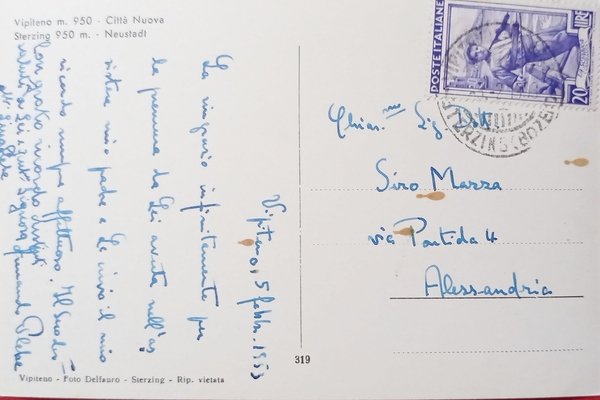 Vipiteno m. 950 - Città Nuova
Sterzing 950 m. - Neustadt
POSTE ITALIANE
LIRE 20
STERZING (BOZEN)
Vipiteno, 5 febbr. 1953
La ringrazio infinitamente per
la premura da Lei avuta nell'as
sistere mio padre e Le invio il mio
ricordo sempre affettuoso. Il Suo
Con grato
saluti a Lei e Signora
Chiar.mo Sig.
Siro Mazza
via Pontida 4
Alessandria
319
Vipiteno - Foto Delfauro - Sterzing - Rip. vietata